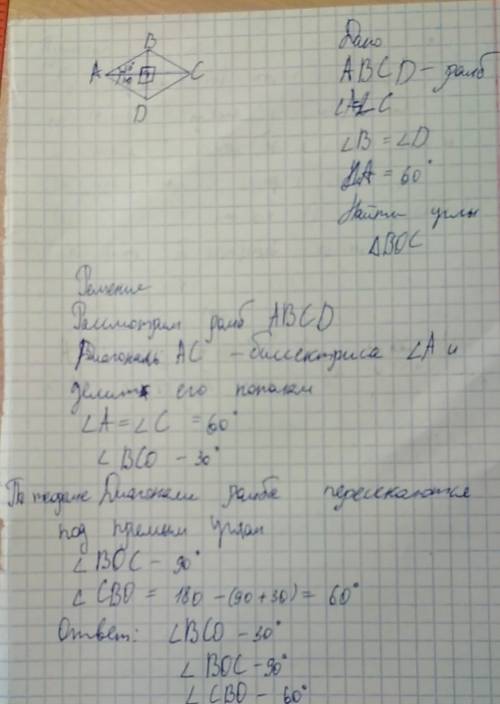 B
A
C
D
Дано
ABCD – ромб
∠A=∠C
∠B = ∠D
∠A = 60°
Найти углы
△BOC
Решение
Рассмотрим ромб ABCD
Диагональ AC – биссектриса ∠A и
делит его пополам
∠A = ∠C = 60°
∠BCO – 30°
По теореме Диагонали ромба пересекаются
под прямым углом
∠BOC – 90°
∠CBO = 180 – (90 + 30) = 60°
Ответ: ∠BCO – 30°
∠BOC – 90°
∠CBO – 60°